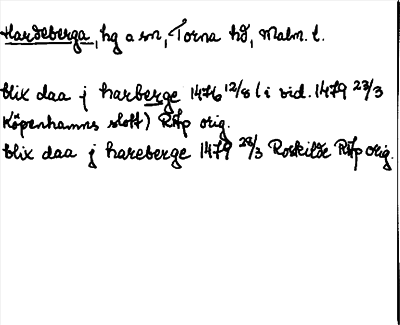 Hardeberga, hg a sn, Torna hd, Malm. l.
blix daa j harberge 1476 12/8 (i vid. 1479 23/3
Köpenhamns slott) RAp orig.
blix daa j hareberge 1479 28/3 Roskilde RAp orig.